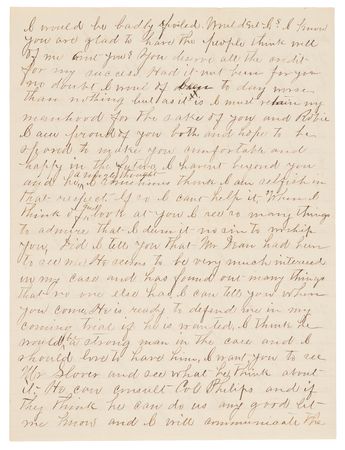 I would be badly spoiled. Wouldent I? I know
you are glad to have the people think well
of me aint you? You deserve all the credit
for my success. Had it not been for you
no doubt I would of been to day worse
than nothing but as it is I must retain my
manhood for the sake of you and Robie
I am proud of you both and hope to be
spared to make you comfortable and
happy in the future. I havent beyond you
and him, a single thought I sometimes think I am selfish in
that respect. If so I cant help it. When I
think of and look at you I see so many things
to admire that I deem it no sin to worship
you. Did I tell you that Mr. Dean had been
to see me. He seems to be very much interested
in my case and has found out many things
that no one else has. I can tell you when
you come. He is ready to defend me in my
coming trial if he is wanted. I think he
would be a strong man in the case and I
should love to have him. I want you to see
Mr Slover and see what he think about
it. He can consult Col Philips and if
they think he can do us any good let
me know and I will communicate the